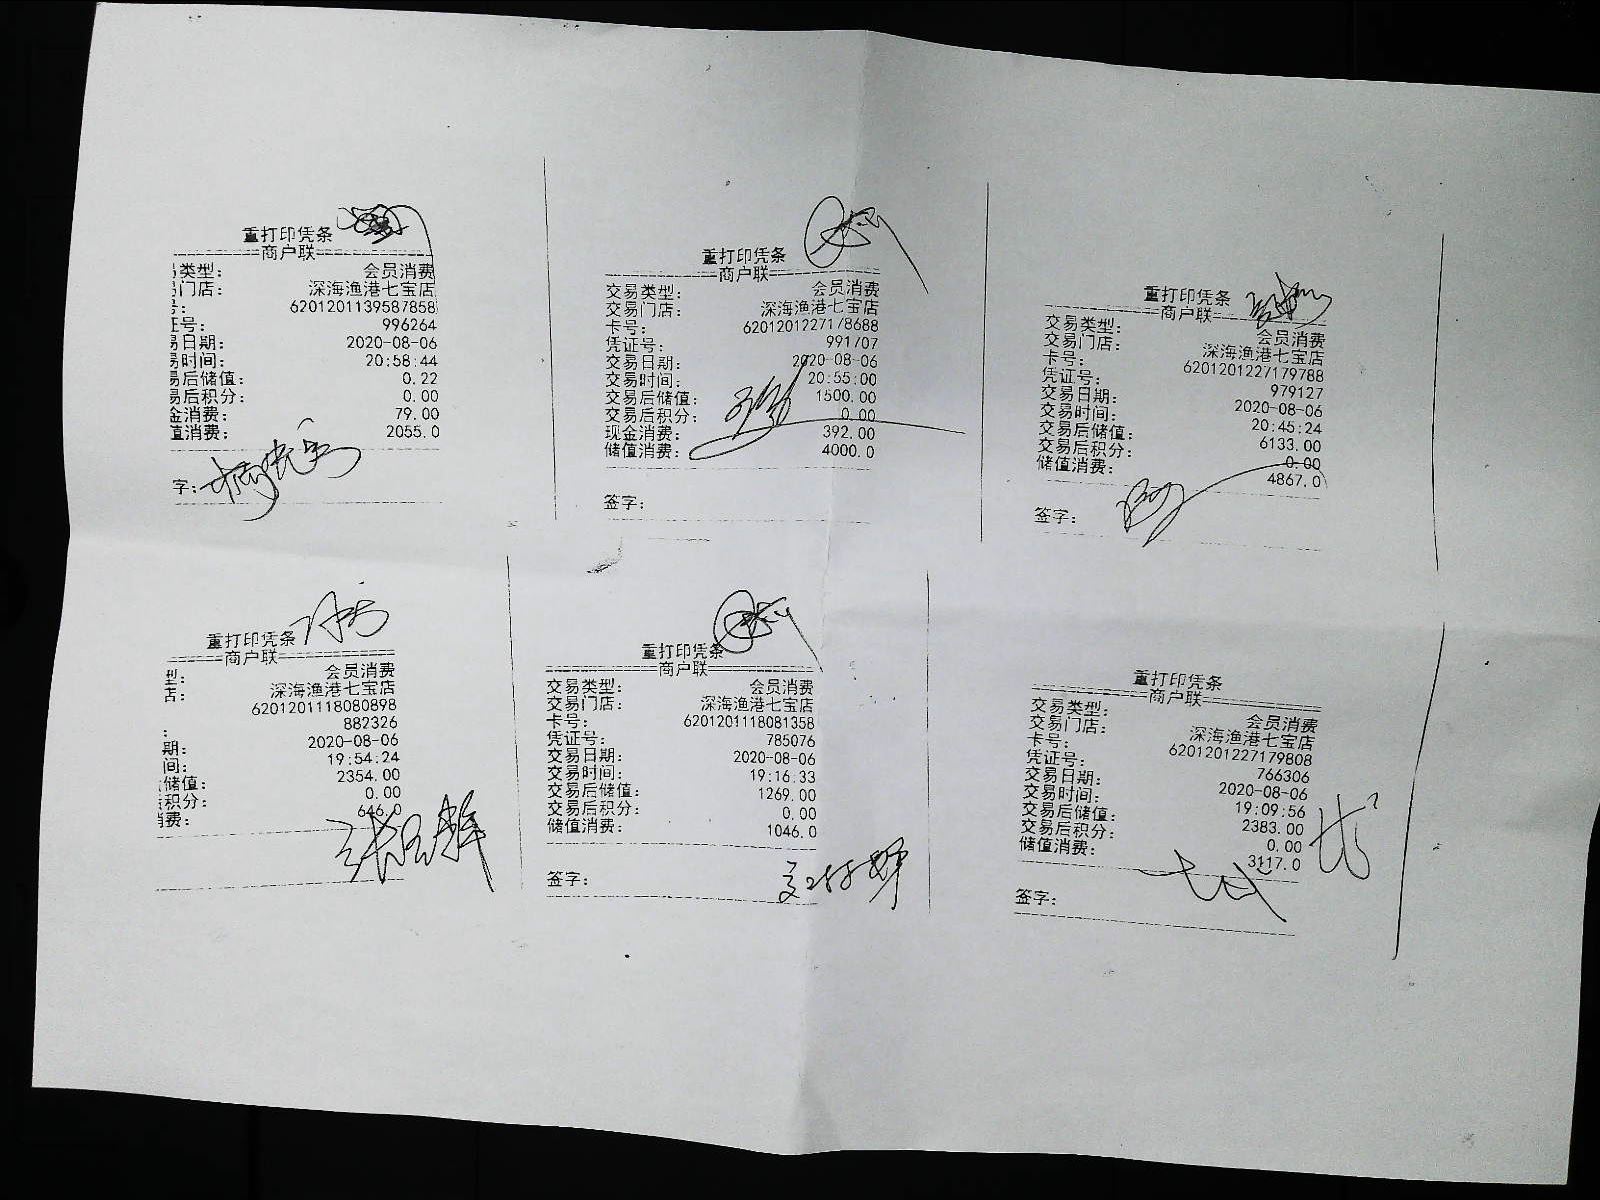 重打印凭条
商户联
易类型: 会员消费
易门店: 深海渔港七宝店
号: 6201201139587858
证号: 996264
易日期: 2020-08-06
易时间: 20:58:44
易后储值: 0.22
易后积分: 0.00
金消费: 79.00
值消费: 2055.0
字:
重打印凭条
商户联
交易类型: 会员消费
交易门店: 深海渔港七宝店
卡号: 6201201227178688
凭证号: 991707
交易日期: 2020-08-06
交易时间: 20:55:00
交易后储值: 1500.00
交易后积分: 0.00
现金消费: 392.00
储值消费: 4000.0
签字:
重打印凭条
商户联
交易类型: 会员消费
交易门店: 深海渔港七宝店
卡号: 6201201227179788
凭证号: 979127
交易日期: 2020-08-06
交易时间: 20:45:24
交易后储值: 6133.00
交易后积分: 0.00
储值消费: 4867.0
签字:
重打印凭条
商户联
型: 会员消费
店: 深海渔港七宝店
6201201118080898
: 882326
期: 2020-08-06
间: 19:54:24
储值: 2354.00
积分: 0.00
消费: 646.0
重打印凭条
商户联
交易类型: 会员消费
交易门店: 深海渔港七宝店
卡号: 6201201118081358
凭证号: 785076
交易日期: 2020-08-06
交易时间: 19:16:33
交易后储值: 1269.00
交易后积分: 0.00
储值消费: 1046.0
签字:
重打印凭条
商户联
交易类型: 会员消费
交易门店: 深海渔港七宝店
卡号: 6201201227179808
凭证号: 766306
交易日期: 2020-08-06
交易时间: 19:09:56
交易后储值: 2383.00
交易后积分: 0.00
储值消费: 3117.0
签字: